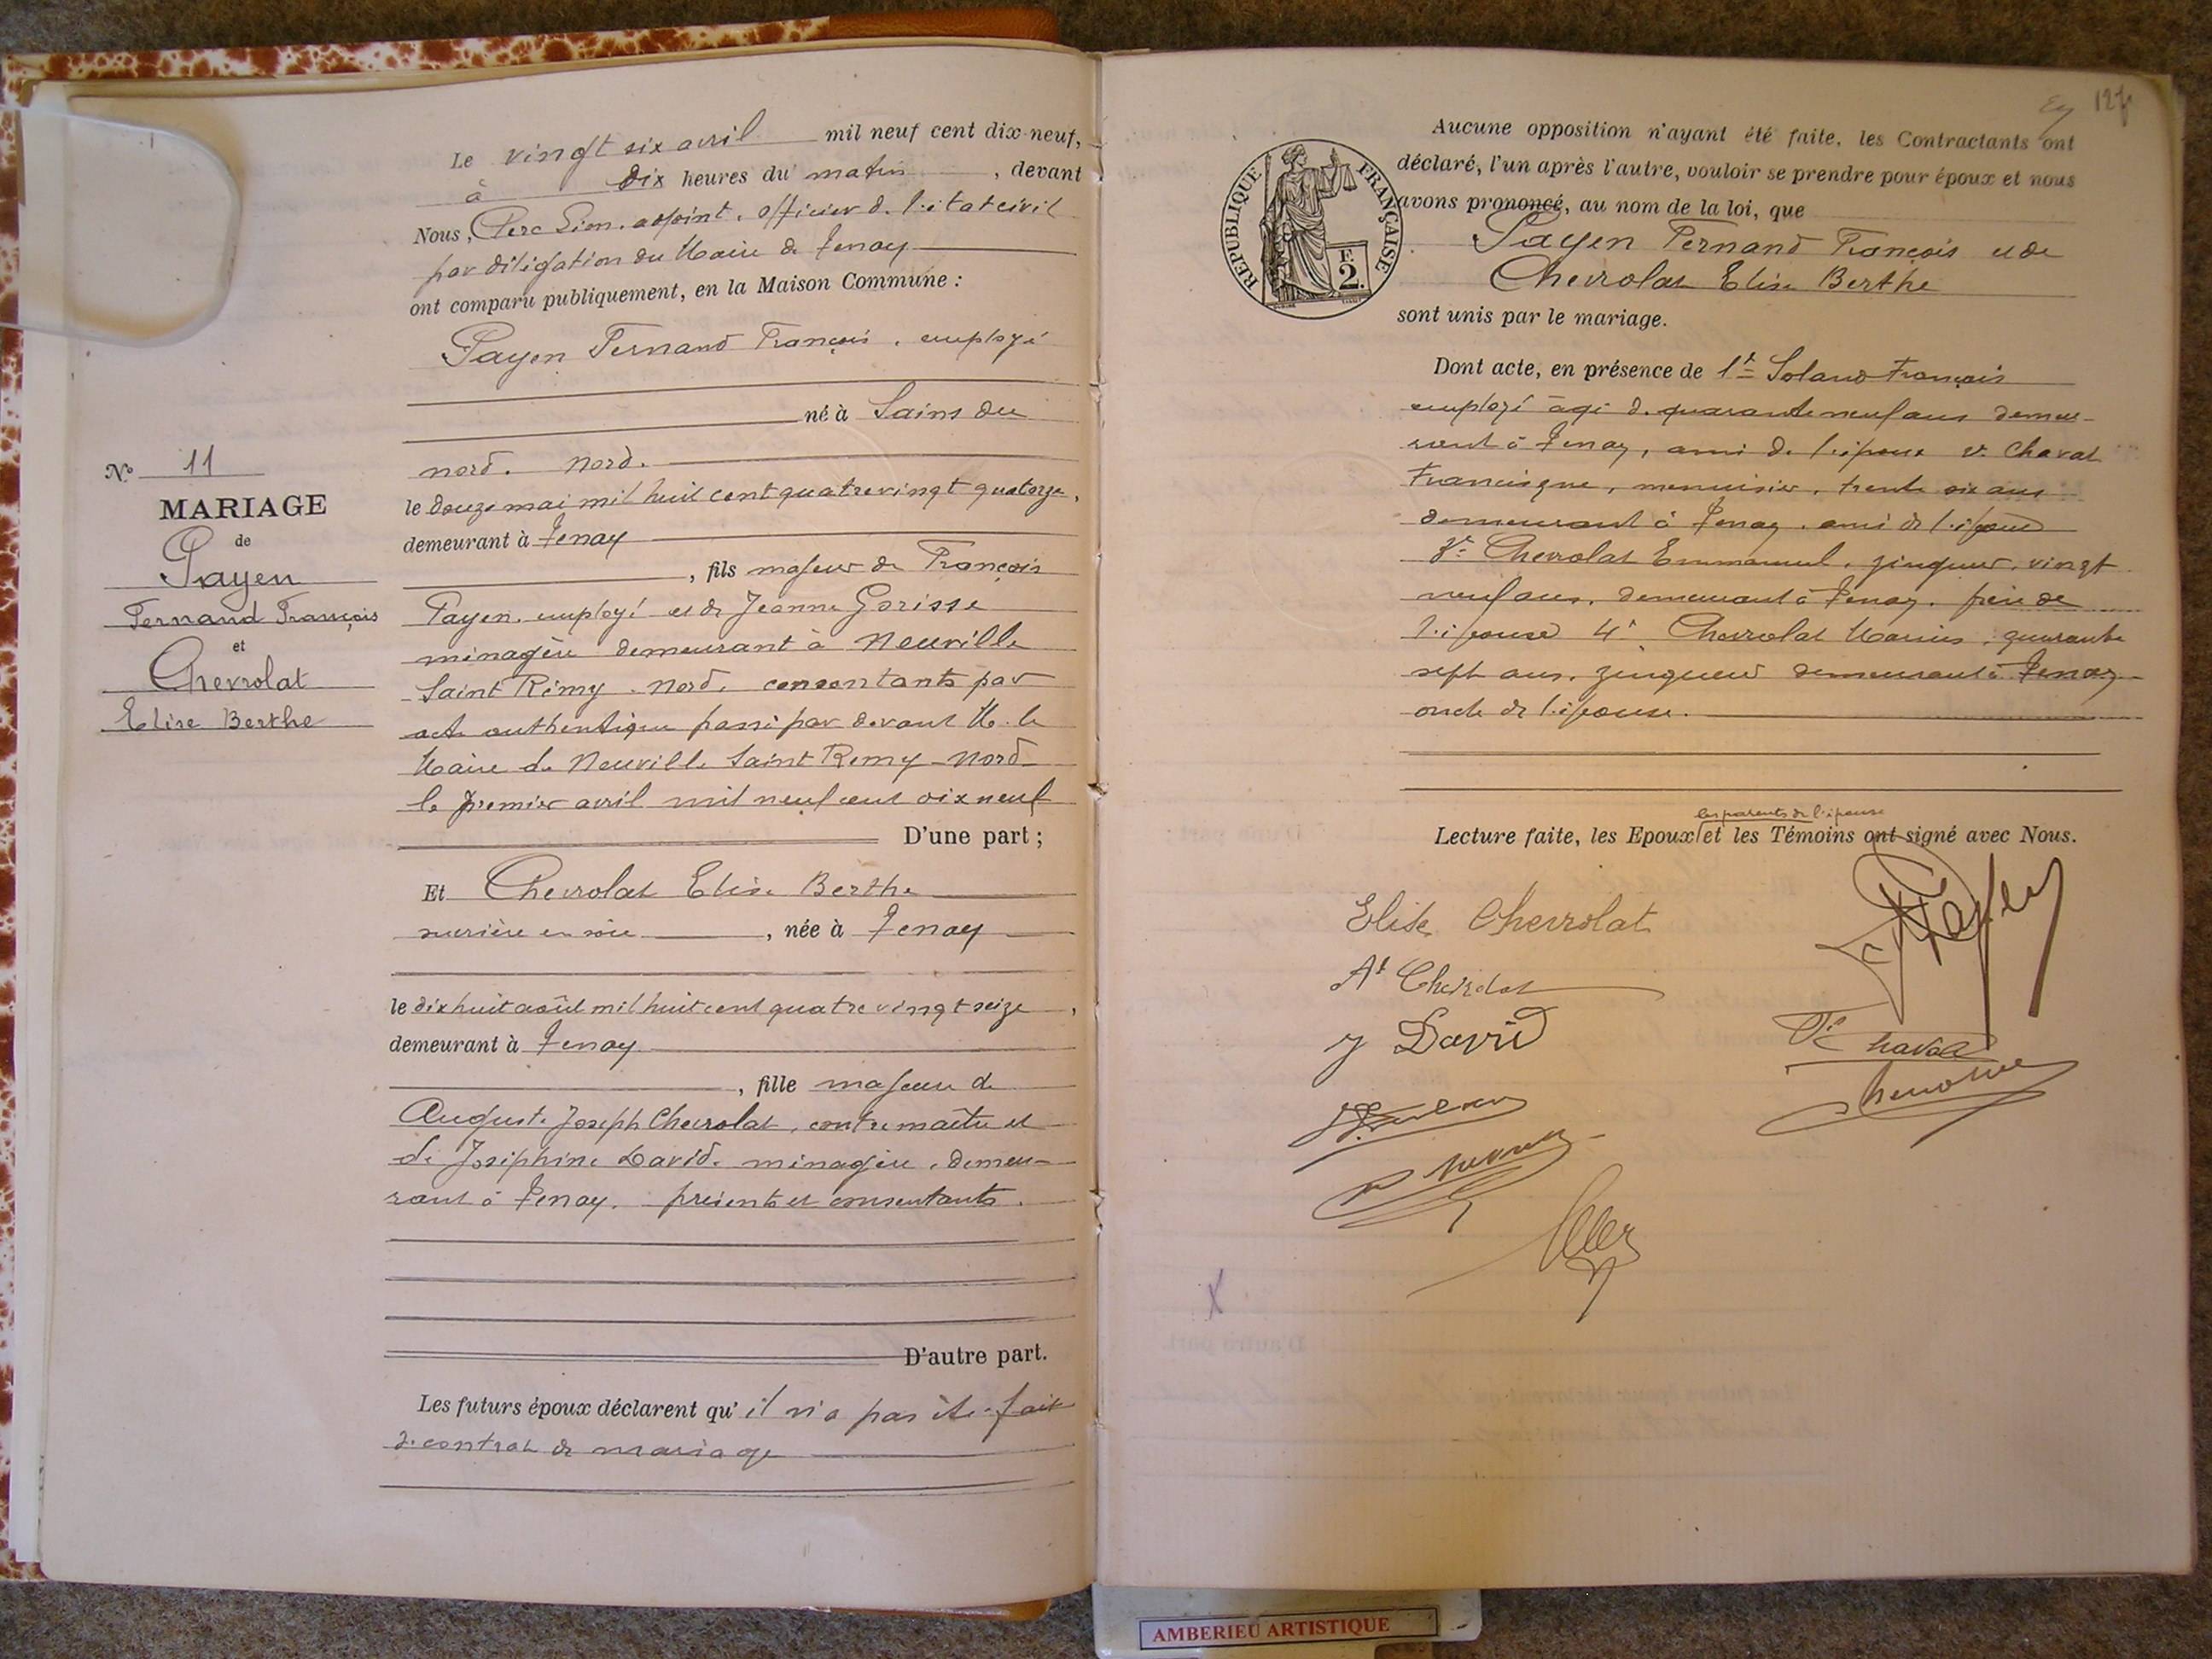 Le vingt six avril mil neuf cent dix-neuf,
à dix heures du matin, devant
Nous, adjoint, officier de l'état civil
par délégation du Maire de Tenay
ont comparu publiquement, en la Maison Commune :
Payen Fernand François, employé
né à Sains du
nord. Nord.
le douze mai mil huit cent quatre vingt quatorze,
demeurant à Tenay
, fils majeur de François
Payen, employé et de Jeanne Gorisse
ménagère demeurant à Neuville
Saint Rémy. Nord. consentants par
acte authentique passé par devant M. le
Maire de Neuville Saint Remy - Nord
le premier avril mil neuf cent dix neuf
D'une part ;
Et Chevrolat Elise Berthe
en soie, née à Tenay
le dix huit août mil huit cent quatre vingt seize,
demeurant à Tenay
, fille majeure de
Auguste Joseph Chevrolat, contremaître et
de Joséphine David. ménagère, demeu-
rant à Tenay. présents et consentants.
D'autre part.
Les futurs époux déclarent qu'il n'a pas été fait
de contrat de mariage
N° 11
MARIAGE
de
Payen
Fernand François
et
Chevrolat
Elise Berthe
127
Aucune opposition n'ayant été faite, les Contractants ont
déclaré, l'un après l'autre, vouloir se prendre pour époux et nous
avons prononcé, au nom de la loi, que
Payen Fernand François et de
Chevrolat Elise Berthe
sont unis par le mariage.
RÉPUBLIQUE FRANÇAISE
F. 2.
Dont acte, en présence de 1° Soland François
employé âgé de quarante neuf ans demeu-
rant à Tenay, ami de l'époux 2° Chaval
Francisque, menuisier, trente six ans
demeurant à Tenay. ami de l'époux
3° Chevrolat Emmanuel, zingueur, vingt
neuf ans, demeurant à Tenay. frère de
l'épouse 4° Chevrolat Marius, quarante
sept ans, zingueur demeurant à Tenay
oncle de l'épouse.
les parents de l'épouse
Lecture faite, les Epoux et les Témoins ont signé avec Nous.
Elise Chevrolat
At Chevrolat
J David
Chaval
AMBERIEU ARTISTIQUE